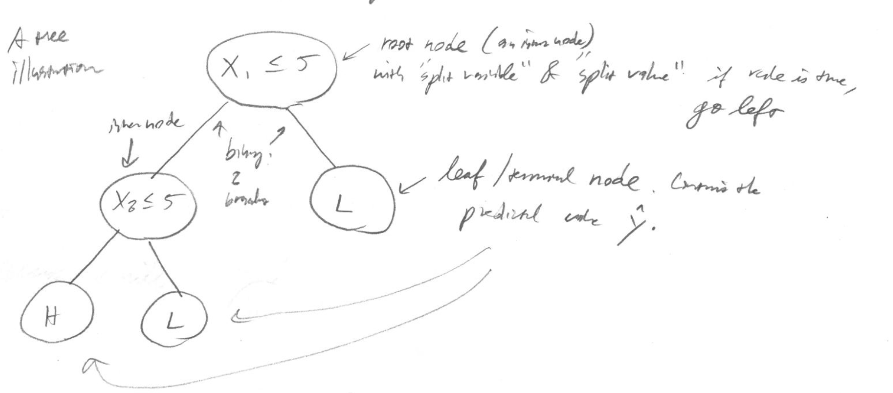 A tree
illustration
X₁ ≤ 5
root node (an inner node)
with "split variable" & "split value" if rule is true,
go left
inner node
binary:
2
branches
X₂ ≤ 5
L
leaf / terminal node. Contains the
predicted value ŷ.
H
L